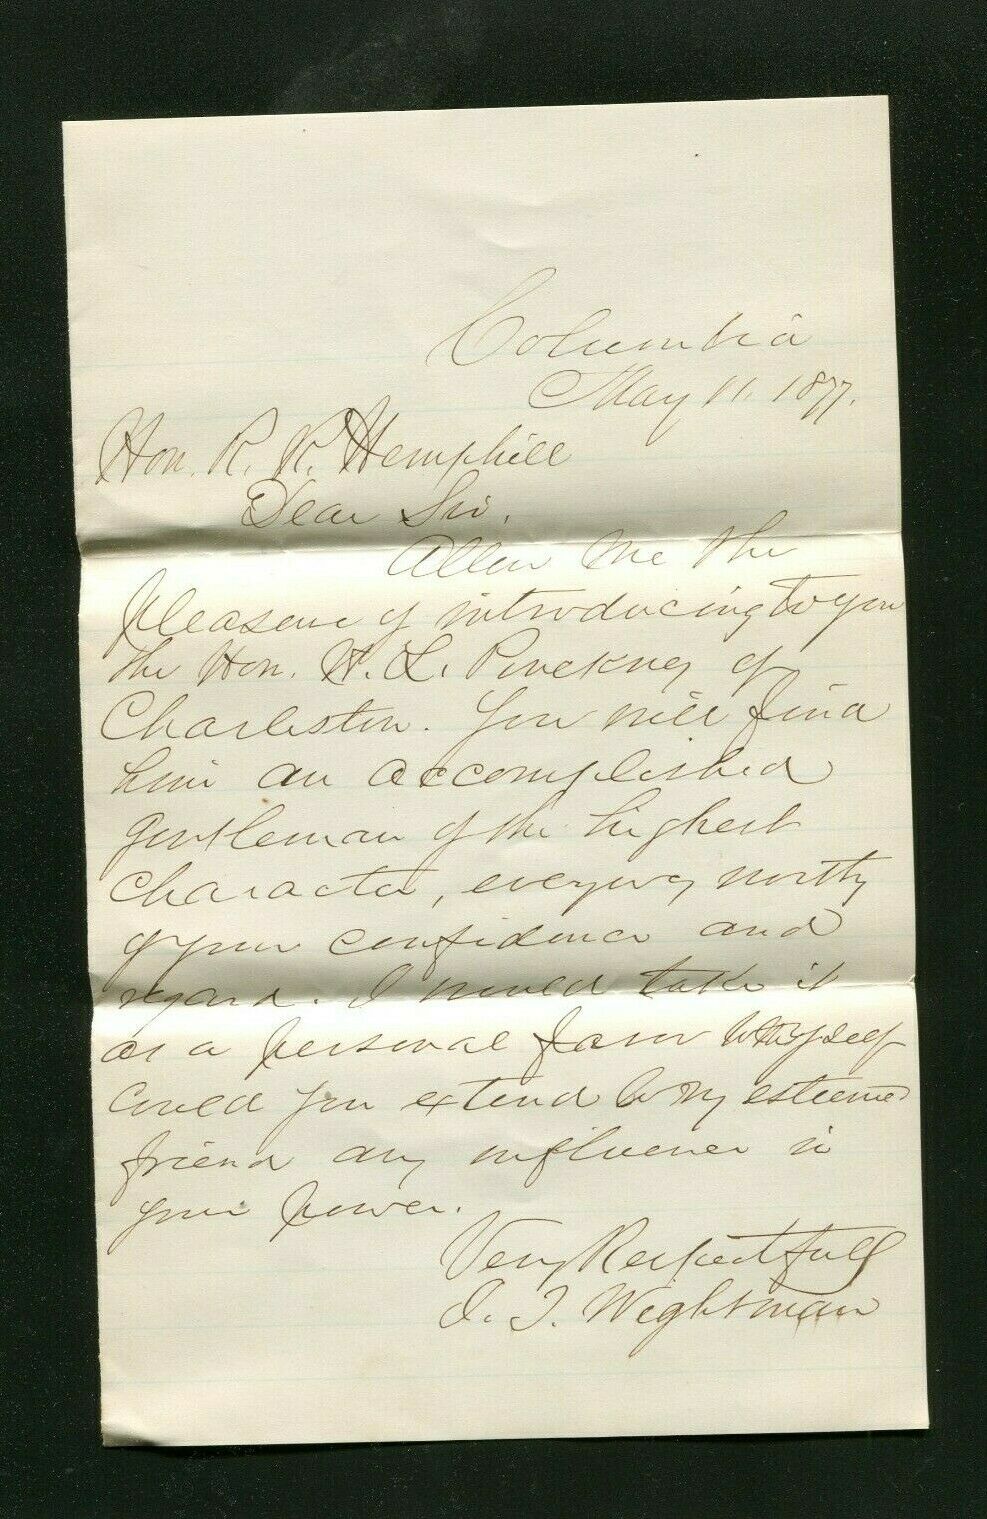 Columbia
May 11. 1877.
Hon. R. R. Hemphill
Dear Sir,
Allow me the
pleasure of introducing to you
the Hon. H. L. Pinckney of
Charleston. You will find
him an accomplished
gentleman of the highest
character, everyway worthy
of your confidence and
regard. I would take it
as a personal favor to myself
could you extend to my esteemed
friend any influence in
your power.
Very Respectfull
J. T. Wightman